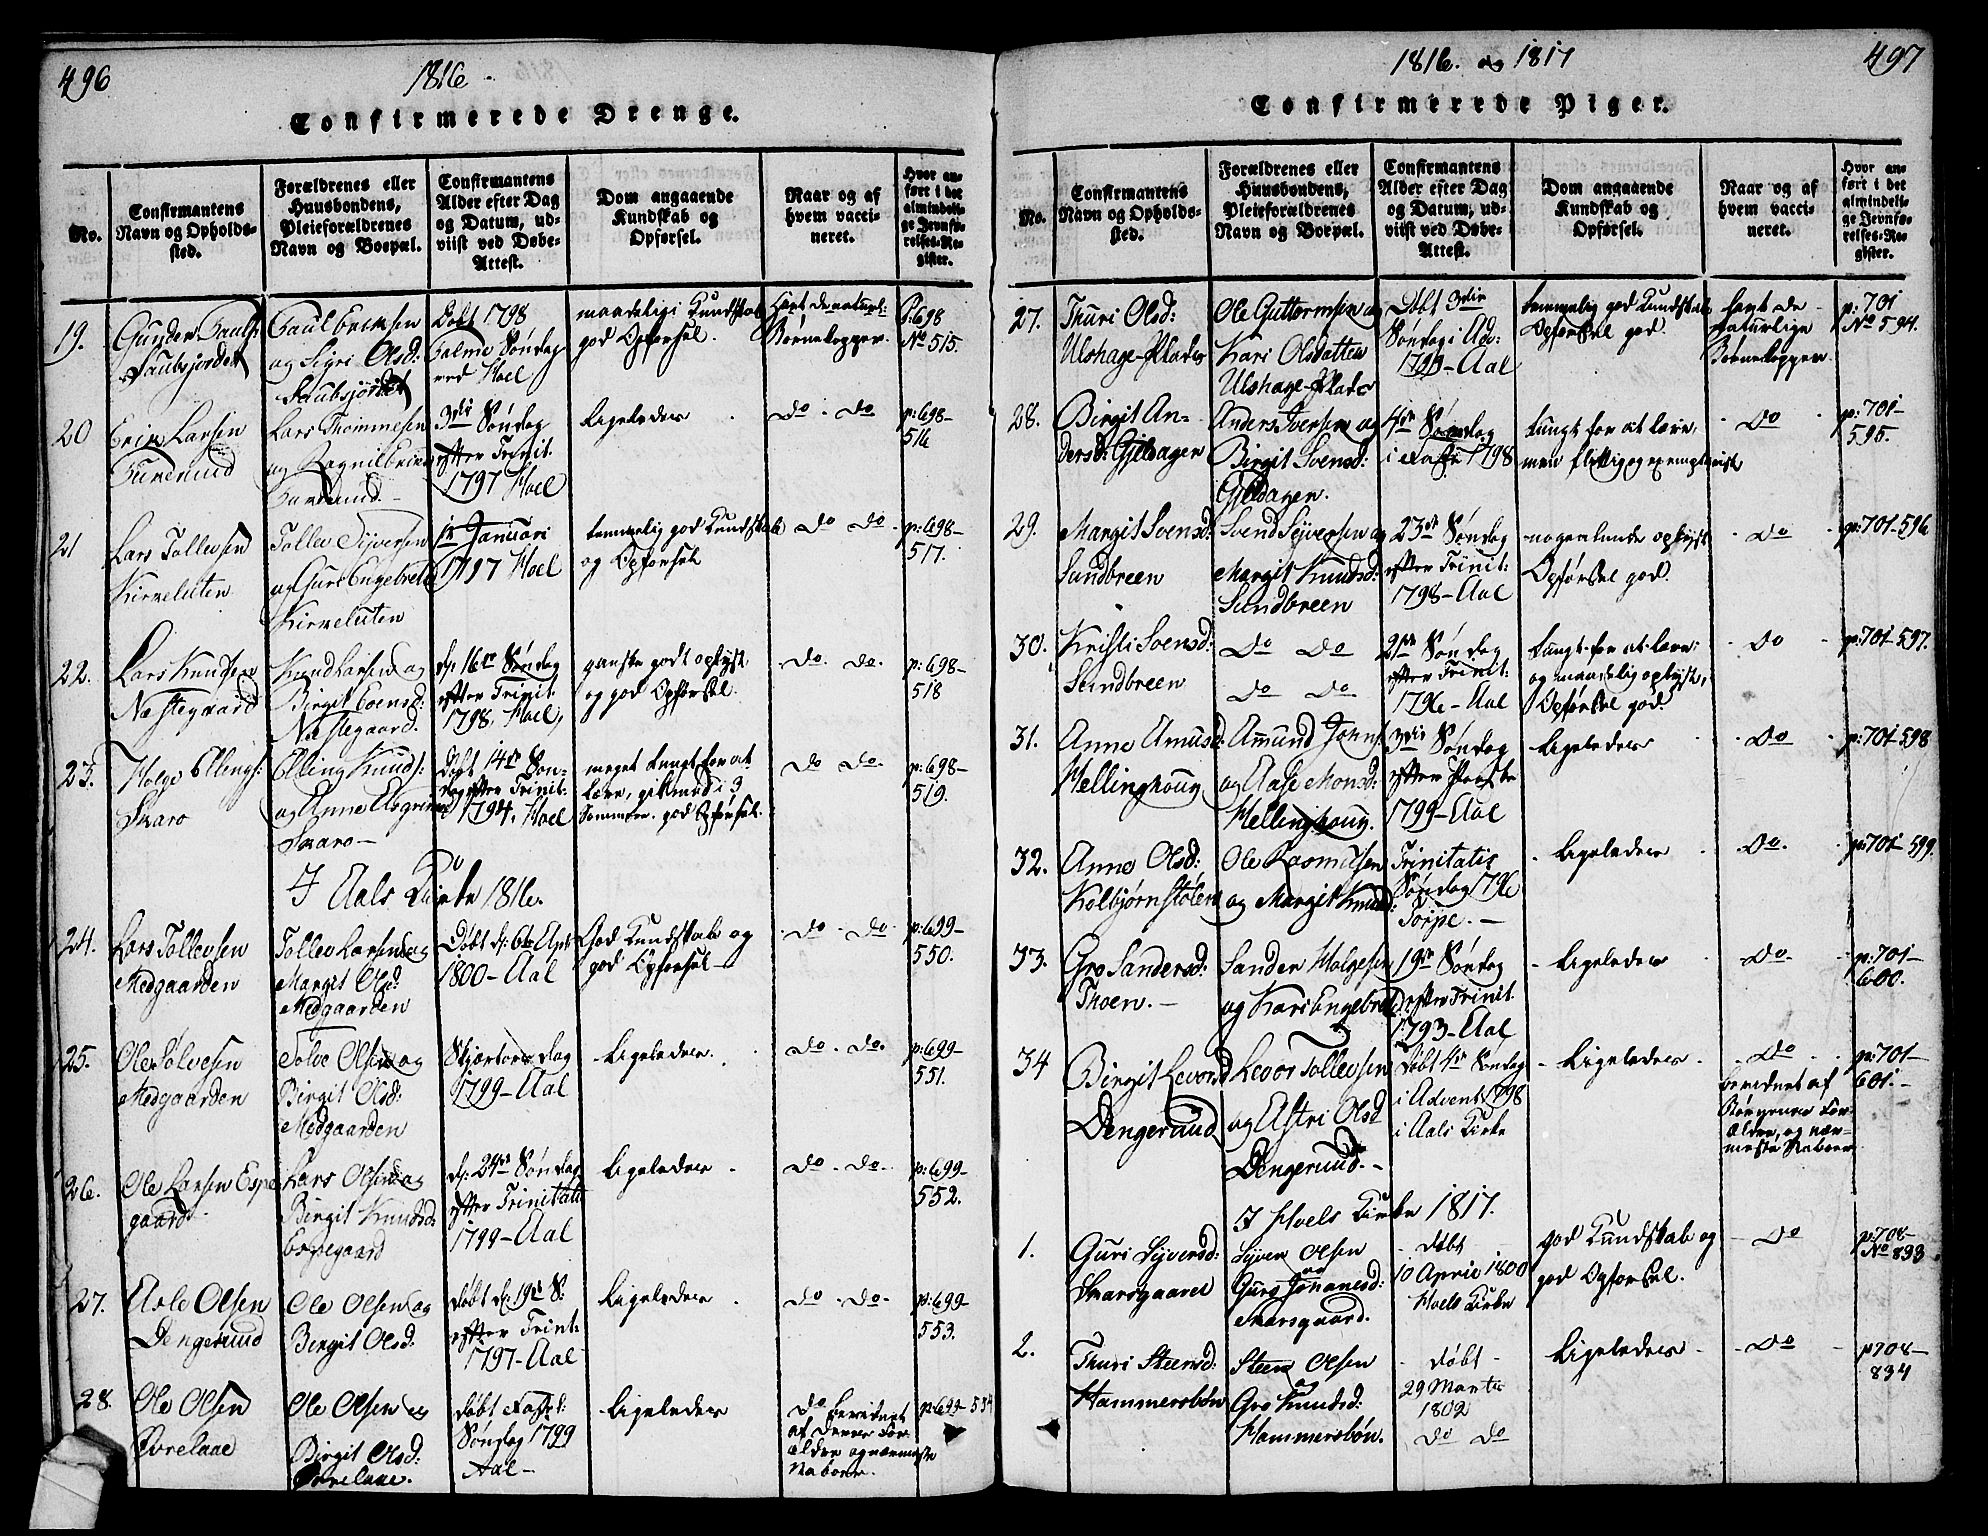 496
1816.
Confirmerede Drenge.
No.
Confirmantens
Navn og Opholds-
sted.
Forældrenes eller
Huusbondens,
Pleieforældrenes
Navn og Boepæl.
Confirmantens
Alder efter Dag
og Datum, ud-
viist ved Døbe-
Attest.
Dom angaaende
Kundskab og
Opførsel.
Naar og af
hvem vacci-
neret.
Hvor an-
ført i det
almindeli-
ge Jevnfø-
relses-Re-
gister.
19.
Saubsjordet
og Sigri Olsd:
Saubsjordet
Døbt 1798
Palme Søndag
ved Hoel
maadelig Kundskab
god Opførsel.
havt de naturl:
Børnekopper.
p:698
No 515.
20
Erik Larsen
Lars Thommesen
3die Søndag
efter Trinit.
1797 Hoel
ligeledes
do. do
p:698-
516
21
Lars Tollevsen
Kirkeluten
Kirkeluten
Januari
1797 Hoel
temmelig god Kundskab
og Opførsel
do do.
p:698-
517.
22.
Lars Knudsen
Nestegaard
Knud Larsen og
Birgit Svensd:
Nestegaard.
d: 16de Søndag
efter Trinit
1798, Hoel,
ganske godt oplyst
og god Opførsel.
do. do.
p:698-
518
23.
Holge Ellings:
Skaro
Elling Knuds:
Skaro-
Døbt 14de Søn-
dag efter Trinit:
1794. Hoel
meget tungt for at
lære, gik med i 3
Sommere. god Opførsel.
do do.
p:698-
519.
I Aals Kirke 1816.
24.
Lars Tollevsen
Medgaarden
Tollev Larsen og
Margit Olsd:
Medgaarden
Døbt d: 6te Apr
1800-Aal
God Kundskab og
god Opførsel
do. do.
p:699-
550.
25.
Ole Solvesen
Medgaarden
Solve Olsen og
Birgit Olsd:
Medgaarden
Skjærtorsdag
1799-Aal
Ligeledes.
do. do.
p:699-
551.
26.
Ole Larsen Espe
gaard
Lars Olsen og
Birgit Knudsd:
Espegaard
d: 24de Søndag
efter Trinitatis
1799-Aal
Ligeledes.
do. do.
p:699-
552.
27.
Olsen
Dengerud
Ole Olsen og
Birgit Olsd:
døbt d: 19de S:
efter Trint:
1797-Aal
Ligeledes
do. do.
p:699-
553.
28.
Ole Olsen
Ole Olsen og
Birgit Olsd:
døbt Faste:
Søndag 1799
Aal-
Ligeledes
do bevidnet
af deres For-
ældre og nærmeste
Naboer.
p:699-554
1816. og 1817
497
Confirmerede Piger.
No.
Confirmantens
Navn og Opholds-
sted.
Forældrenes eller
Huusbondens,
Pleieforældrenes
Navn og Boepæl.
Confirmantens
Alder efter Dag
og Datum, ud-
viist ved Døbe-
Attest.
Dom angaaende
Kundskab og
Opførsel.
Naar og af
hvem vacci-
neret.
Hvor an-
ført i det
almindeli-
ge Jevnfø-
relses-Re-
gister.
27.
Thuri Olsd:
Ulshage-Plads
Ole Guttormsen og
Kari Olsdatter
Ulshage-Plads
Døbt 3die
Søndag i Adv:
1799-Aal
temmelig god Kundskab
Opførsel god
havt de
naturlige
Børnekopper.
p:701
No 594.
28.
Birgit An-
dersd: Gjeldagen
Anders Iversen og
Birgit Svensd:
Gjeldagen.
4de Søndag
i Faste 1798
tungt for at lære,
men flittig og exemplarisk
do
p:701-
595.
29.
Margit Svensd:
Sundbreen
Svend Syversen og
Margit Knudsd:
Sundbreen
23de Søndag
efter Trinit:
1798-Aal
nogenlunde oplyst
Opførsel god.
do
p:701-596
30.
Kristi Svensd:
Sundbreen
do do
do do
21de Søndag
efter Trinit:
1796-Aal
tungt for at lære:
og maadelig oplyst,
Opførsel god.
do
p:701-597.
31.
Anne Amusd:
Hellinghoug
Amund Johns:
og Aase Monsd:
Hellinghoug.
3die Søndag
efter Paaske
1799-Aal
Ligeledes
do
p:701-598
32.
Anne Olsd:
Kolbjørnstølen
Ole Rasmusen
og Margit Knud:
Trinitatis
Søndag 1796
Torpe.-
Ligeledes
do.
p:701-599.
33.
Gro Sandersd:
Thoen.-
Sander Holgesen
og Kari Engebretsd:
19de Søndag
efter Trinit.
1793-Aal
Ligeledes
do
p:701-
600.
34
Birgit Levord
Dengerud
Levor Tollevsen
og Astri Olsd
Dengerud.-
døbt 4de Søndag
i Advent 1798
i Aals Kirke
Ligeledes
do
bevidnet af
Børnenes For-
ældre, og nær-
meste Naboer
p:701-
601.-
I Hoels Kirke 1817.
1.
Guri Syversd:
Skarsgaard
Syver Olsen
og
Guro Johanesd:
Skarsgaard.
døbt
10 April 1800
Hoels Kirke
god Kundskab og
god Opførsel.
do
p:708-
No 833
2.
Thuri Steensd:
Hammersbøn
Steen Olsen
og
Gro Knudsd:
Hammersbøn.
døbt
29 Martz
1802
do do
Ligeledes
do
p708-
834